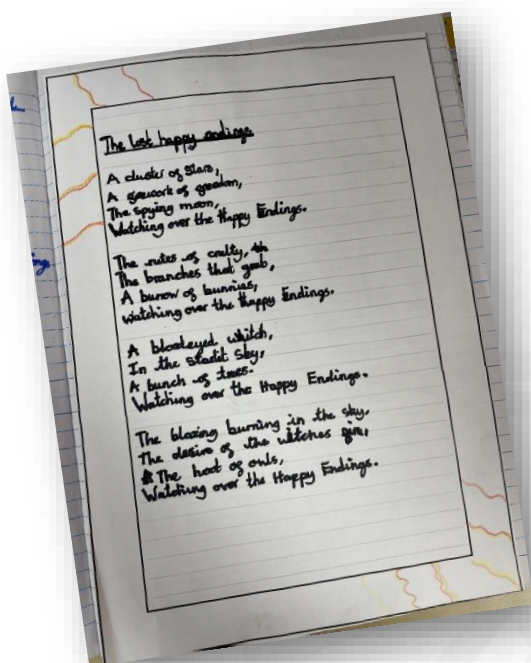 The lost happy endings
A cluster of Stars,
A firework of freedom,
The spying moon,
Watching over the Happy Endings.
The rutes of crulty,
The branches that grab,
A burrow of bunnies,
watching over the Happy Endings.
A bloodeyed whitch,
In the starlit Sky,
A bunch of trees.
Watching over the Happy Endings.
The blazing burning in the sky.
The desire of the witches fire,
The hoot of owls,
Watching over the Happy Endings.